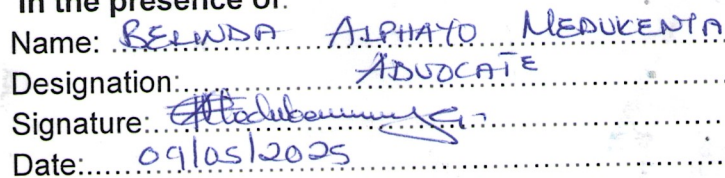 In the presence of:
Name: BELINDA ALPHAYO MEDUKENYA
Designation: ADVOCATE
Signature:
Date: 09/05/2025